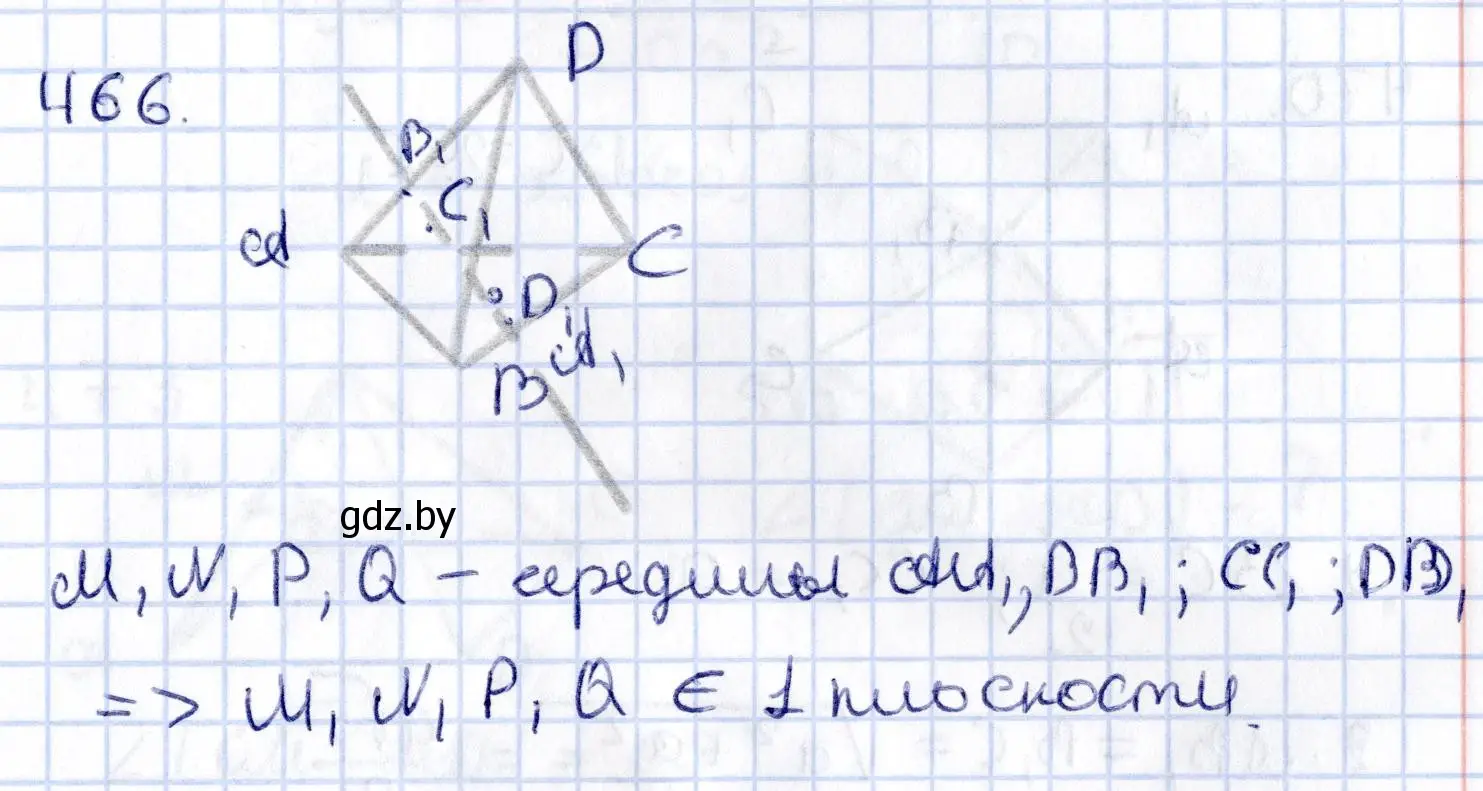 466.
D
B₁
C₁
A
C
D₁
A₁
B
gdz.by
M, N, P, Q – середины AA₁, BB₁; CC₁; DD₁
=> M, N, P, Q ∈ 1 плоскости.